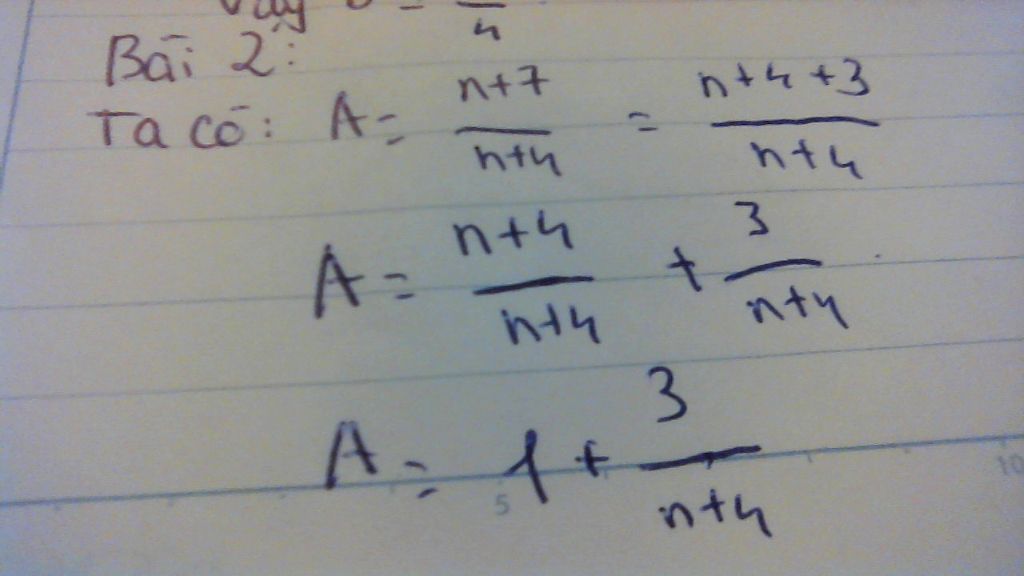 Vậy
4
Bài 2:
Ta có: A = n+7 / n+4 = n+4+3 / n+4
A = n+4 / n+4 + 3 / n+4
A = 1 + 3 / n+4
5 10